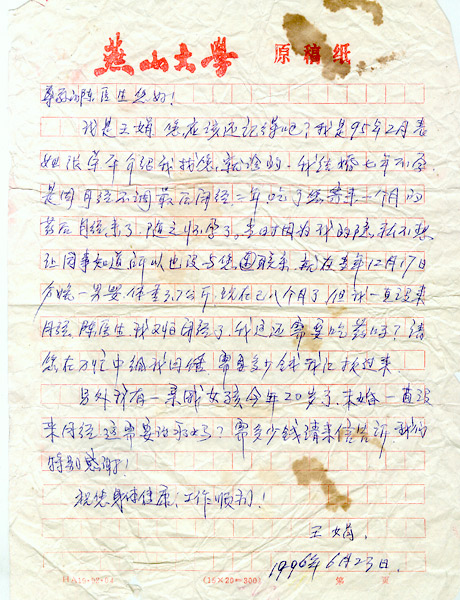 燕山大学 原稿纸
尊敬的陈医生您好!
我是王娟 您应该还记得吧?我是95年2月
介绍我找您 的.我结婚七年不孕
是因月经不调最后闭经二年吃了您 一个月的
药后月经来了.随之怀孕了.当时因为我的隐私不想
让同事知道所以也没与您 联系,就在去年12月17日
分娩一男婴.体重3.7公斤.现在已八个月了但我一直没来
月经.陈医生我又归闭经了.我是还需要吃药吗?请
您在万忙中给我回信 需多少钱我汇 过来.
另外我有一亲戚女孩今年20岁了.未婚一直没
来月经 这需要 吗?需多少钱请来信告诉.我们
特别感谢!
祝您身体健康,工作顺利!
王娟.
1996年6月23日.
(15×20=300) 第 页